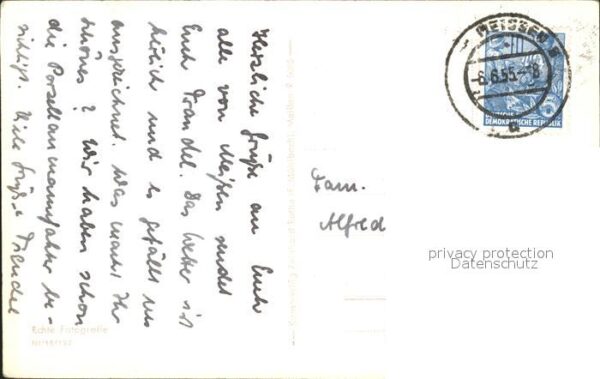 Herzliche Grüße an Euch
alle von Meißen sendet
Euch Traudel. Das Wetter ist
herrlich und es gefällt uns
ausgezeichnet. Was macht Ihr
schönes? Wir haben schon
die Porzellanmanufaktur be-
sichtigt. Viele Grüße Traudel
Echte Fotografie
MEISSEN
-6.6.55.-8
a
DEUTSCHE
DEMOKRATISCHE REPUBLIK
5
Fam.
Alfred
privacy protection
Datenschutz